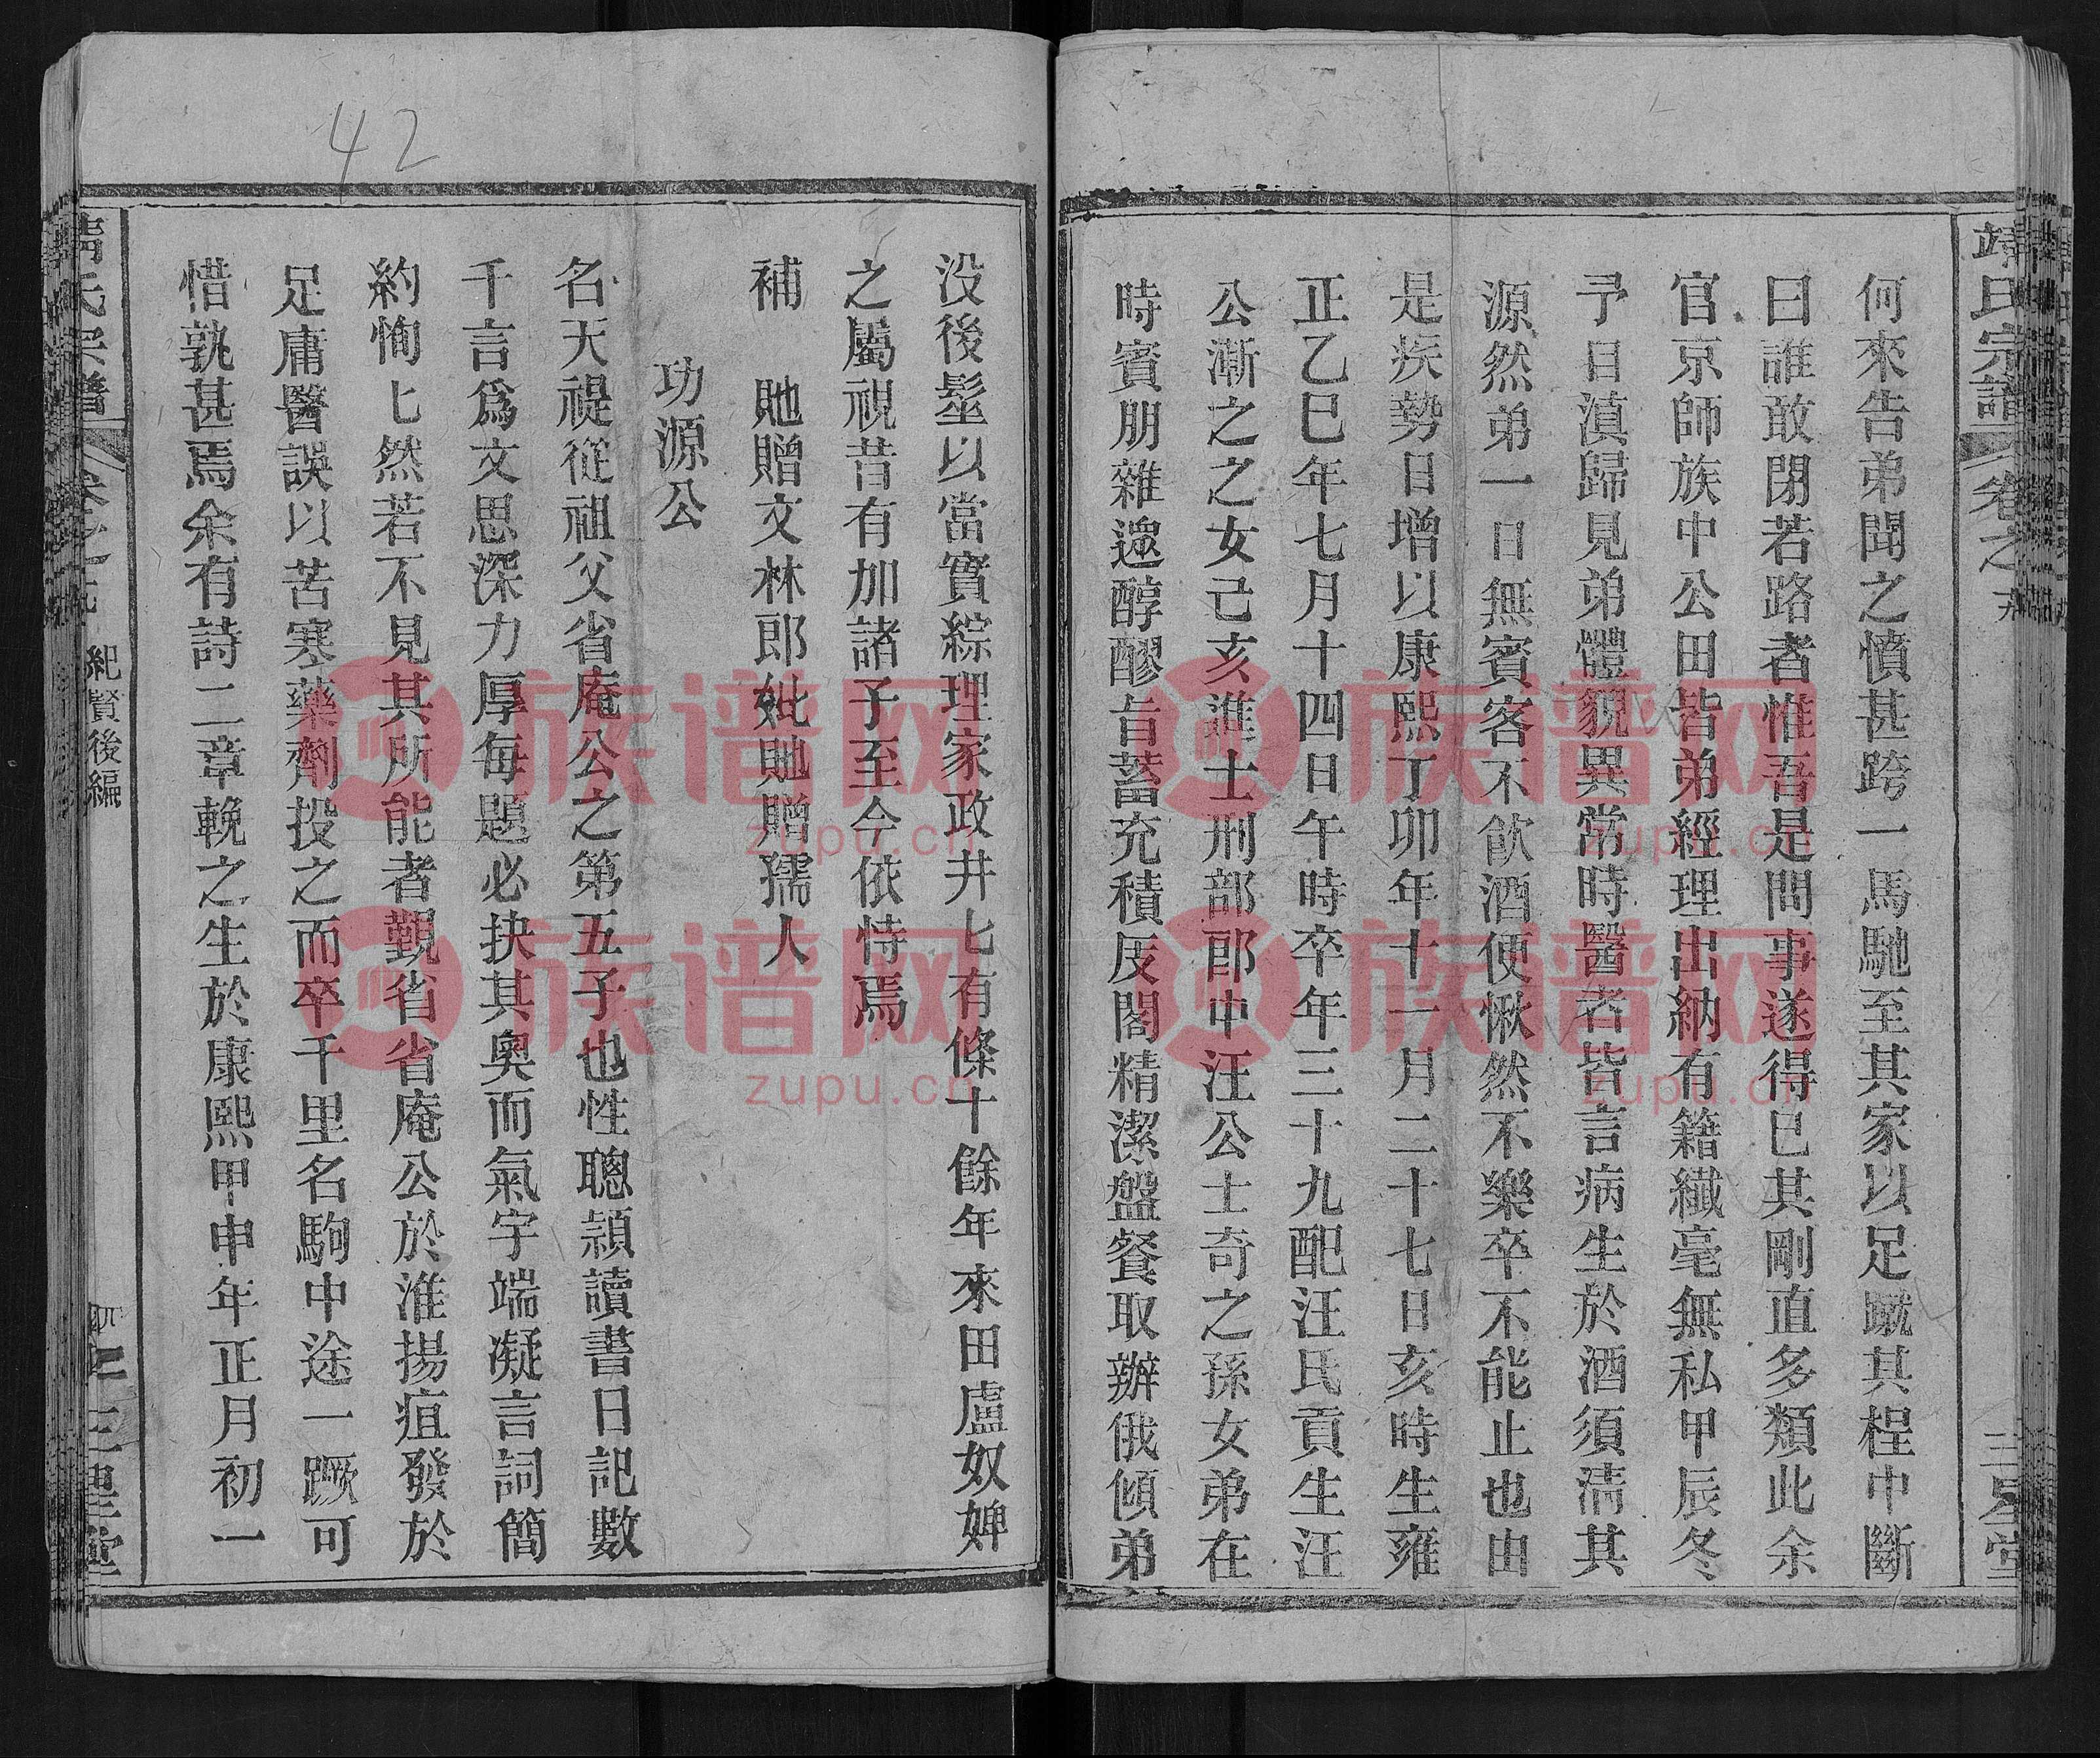 靖氏宗譜 卷之
三星堂
何來告弟聞之憤甚跨一馬馳至其家以足蹴其桯中斷
曰誰敢閉若路者惟吾是問事遂得已其剛直多類此余
官京師族中公田皆弟經理出納有籍纖毫無私甲辰冬
予自滇歸見弟體貌異常時醫者皆言病生於酒須清其
源然弟一日無賓客不飲酒便愀然不樂卒不能止也由
是疾勢日增以康熙丁卯年十一月二十七日亥時生雍
正乙巳年七月十四日午時卒年三十九配汪氏貢生汪
公漸之之女己亥進士刑部郎中汪公士奇之孫女弟在
時賓朋雜遝醇醪旨蓄充積庋閣精潔盤餐取辦俄傾弟
没後髽以當實綜理家政井七有條十餘年來田盧奴婢
之屬視昔有加諸子至今依恃焉
補 貤贈文林郎妣貤贈孺人
功源公
名天禔從祖父省庵公之第五子也性聰頴讀書日記數
千言爲文思深力厚每題必抉其奧而氣宇端凝言詞簡
約恂七然若不見其所能者覲省省庵公於淮揚疽發於
足庸醫誤以苦寒藥劑投之而卒千里名駒中途一蹶可
惜孰甚焉余有詩二章輓之生於康熙甲申年正月初一
紀賢後編
42
族谱网
zupu.cn
族谱网
zupu.cn
族谱网
zupu.cn
族谱网
zupu.cn